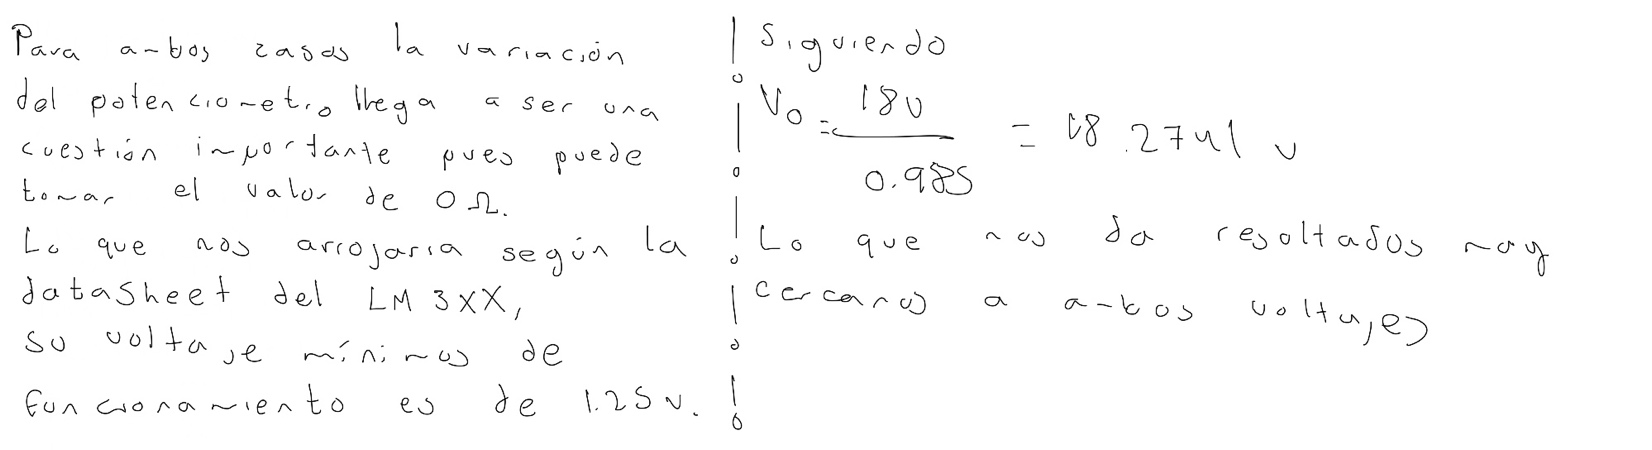 Para ambos casos la variación
del potenciometro llega a ser una
cuestión importante pues puede
tomar el valor de 0 Ω.
Lo que nos arrojaria según la
datasheet del LM 3XX,
su voltaje mínimos de
funcionamiento es de 1.25 v.
Siguiendo
Vo = 18v / 0.985 = 18.2741 v
Lo que nos da resultados muy
cercanos a ambos voltajes